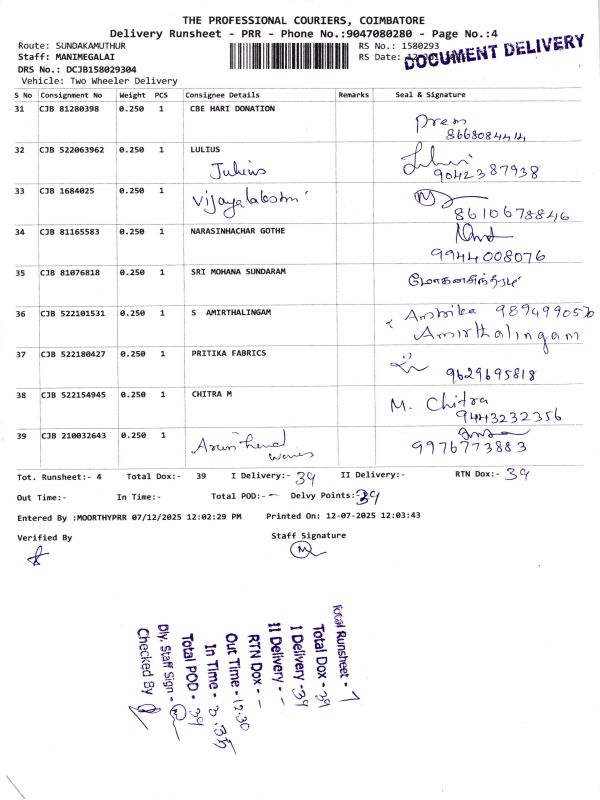 THE PROFESSIONAL COURIERS, COIMBATORE
Delivery Runsheet - PRR - Phone No.:9047080280 - Page No.:4
Route: SUNDAKAMUTHUR
RS No.: 1580293
Staff: MANIMEGALAI
RS Date:
DOCUMENT DELIVERY
DRS No.: DCJB158029304
Vehicle: Two Wheeler Delivery
S No Consignment No Weight PCS Consignee Details Remarks Seal & Signature
31 CJB 81280398 0.250 1 CBE HARI DONATION
Prem
8668084414
32 CJB 522063962 0.250 1 LULIUS
Julius
9042387938
33 CJB 1684025 0.250 1 Vijayalakshmi
8610678846
34 CJB 81165583 0.250 1 NARASINHACHAR GOTHE
9944008076
35 CJB 81076818 0.250 1 SRI MOHANA SUNDARAM
36 CJB 522101531 0.250 1 S AMIRTHALINGAM
Ambika 9894990570
Amirthalingam
37 CJB 522180427 0.250 1 PRITIKA FABRICS
9629695818
38 CJB 522154945 0.250 1 CHITRA M
M. Chitra
9443232356
39 CJB 210032643 0.250 1
9976773883
Tot. Runsheet:- 4 Total Dox:- 39 I Delivery:- 39 II Delivery:- RTN Dox:- 39
Out Time:- In Time:- Total POD:- - Delvy Points:- 39
Entered By :MOORTHYPRR 07/12/2025 12:02:29 PM Printed On: 12-07-2025 12:03:43
Verified By Staff Signature
Total Runsheet -
Total Dox - 39
I Delivery - 39
II Delivery - -
RTN Dox - -
Out Time - 12.30
In Time - 3.35
Total POD - 39
Dly. Staff Sign -
Checked By